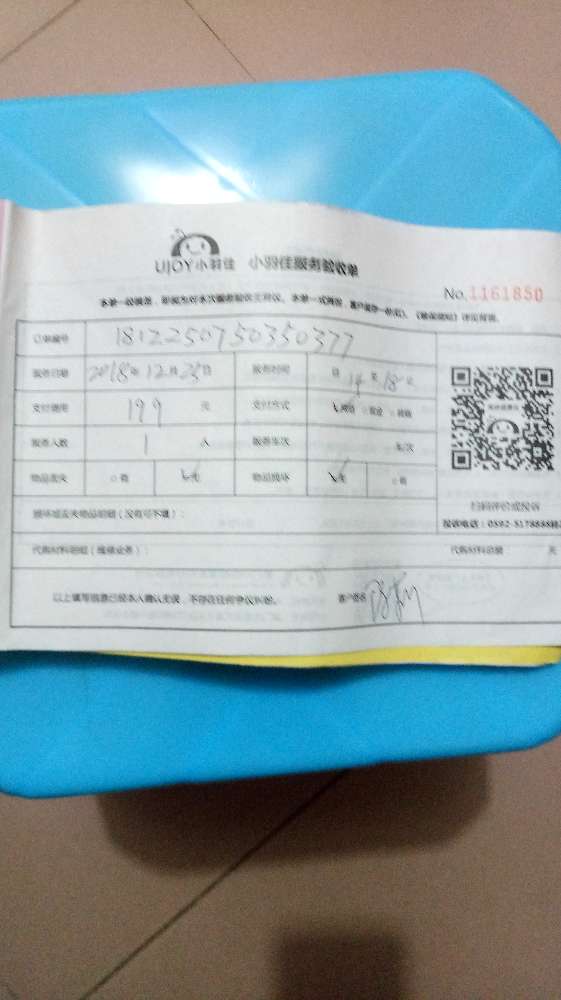 UJOY小羽佳 小羽佳服务验收单
No.1161850
订单编号 181225075035 0377
服务日期 2018年12月25日 服务时间 自 14 至 18 止
支付费用 199 元 支付方式 网络 现金
服务人数 1 人 服务车次 车/次
物品丢失 有 无 物品损坏 无 有
损坏或丢失物品明细(没有可不填):
扫码评价或投诉
投诉电话:0592-5178888转
代购材料明细(维修业务): 代购材料总额 元
以上填写信息已经本人确认无误,不存在任何争议纠纷。 客户签名